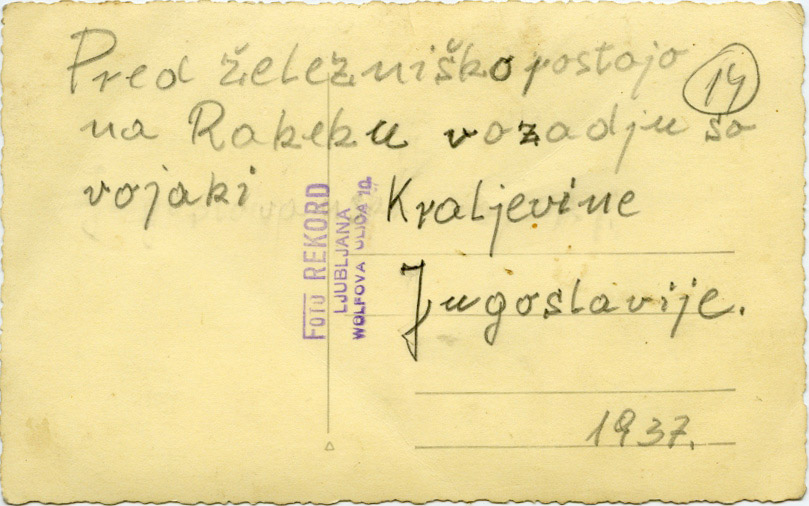 Pred železniško postajo
14
na Rakeku v ozadju so
vojaki Kraljevine
Jugoslavije.
1937.
FOTO REKORD
LJUBLJANA
WOLFOVA ULICA 10.